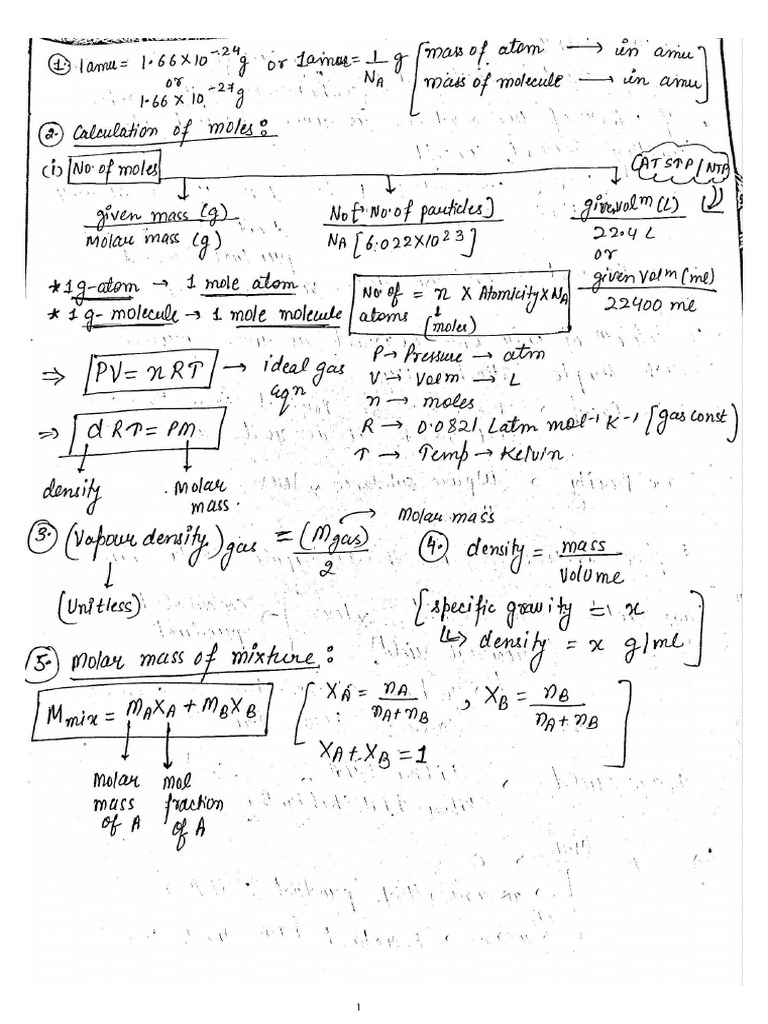 ① 1amu = 1.66×10^-24 g or 1amu = 1/N_A g [mass of atom → in amu
or
1.66×10^-27 g
mass of molecule → in amu]
② Calculation of moles:
(i) No. of moles
(AT STP/NTP)
given mass (g) / Molar mass (g)
No [No. of particles] / N_A [6.022×10^23]
given volm (L) / 22.4 L
or
given volm (ml) / 22400 ml
* 1g-atom → 1 mole atom
* 1g-molecule → 1 mole molecule
No. of atoms = n × Atomicity × N_A
(moles)
⇒ PV = nRT → ideal gas eqn
P → Pressure → atm
V → Volm → L
n → moles
R → 0.0821 Latm mol^-1 K^-1 [gas const]
T → Temp → Kelvin
⇒ dRT = PM
density
Molar mass
③ (Vapour density)gas = (Mgas)/2
Molar mass
(Unitless)
④ density = mass / volume
[specific gravity = x
↳ density = x g/ml]
⑤ Molar mass of mixture:
M mix = M_A X_A + M_B X_B
[X_A = n_A / n_A + n_B , X_B = n_B / n_A + n_B
X_A + X_B = 1]
Molar mass of A
mol fraction of A
1